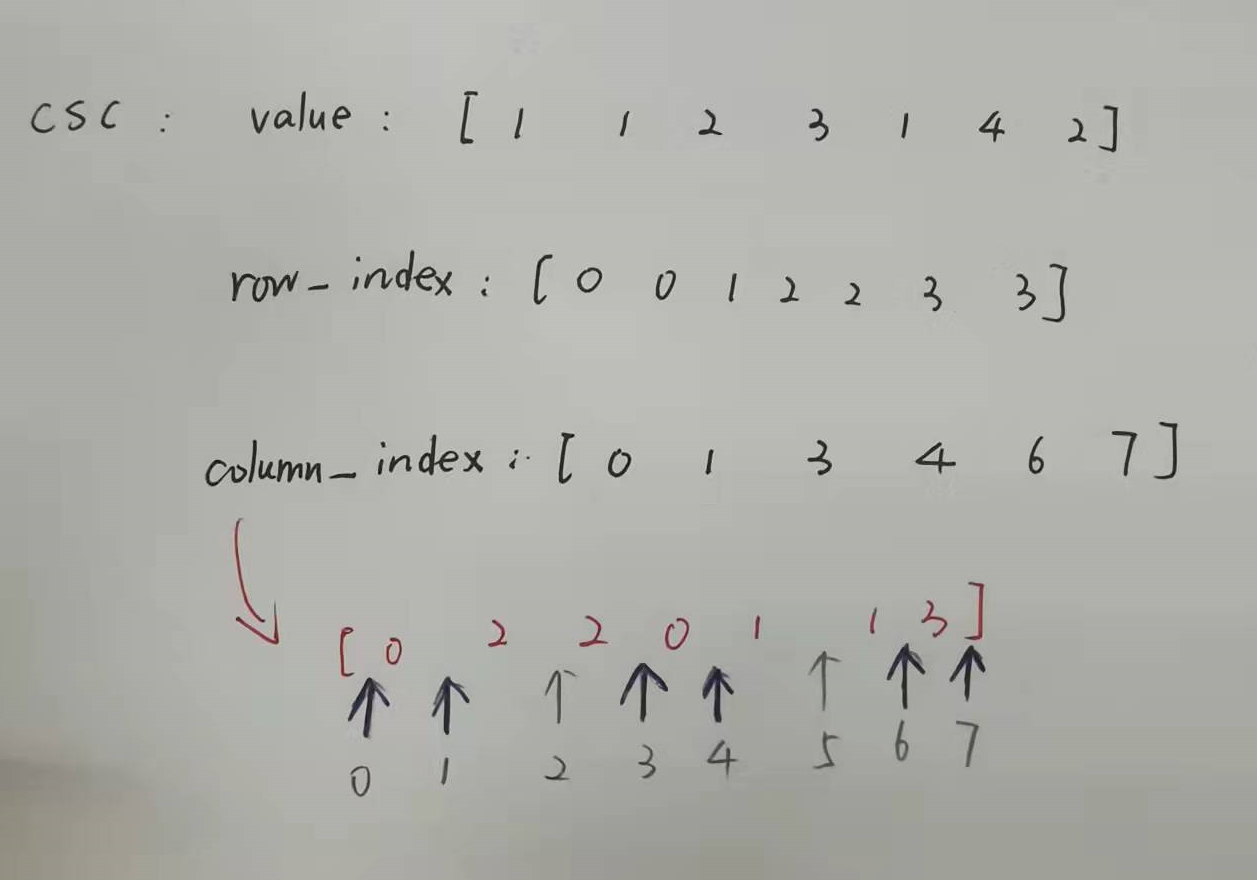 CSC : value : [ 1 1 2 3 1 4 2 ]
row_index : [ 0 0 1 2 2 3 3 ]
column_index : [ 0 1 3 4 6 7 ]
[ 0 2 2 0 1 1 3 ]
↑ ↑ ↑ ↑ ↑ ↑ ↑ ↑
0 1 2 3 4 5 6 7